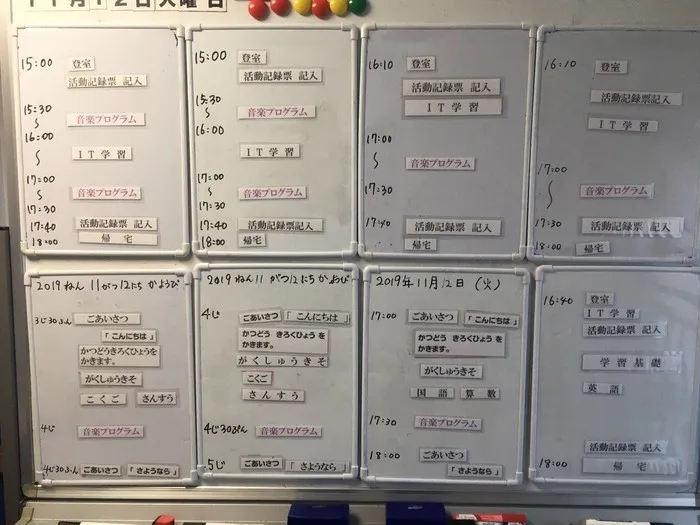 11月12日火曜日
15:00 登室
活動記録票 記入
15:30
〜 音楽プログラム
16:00
〜 IT学習
17:00
〜 音楽プログラム
17:30
17:40 活動記録票 記入
18:00 帰宅
15:00 登室
活動記録票 記入
15:30
〜 音楽プログラム
16:00
IT学習
17:00
〜 音楽プログラム
17:30
17:40 活動記録票 記入
18:00 帰宅
16:10 登室
活動記録票 記入
IT学習
17:00
〜 音楽プログラム
17:30
17:40 活動記録票 記入
帰宅
16:10 登室
活動記録票記入
IT学習
17:00
〜 音楽プログラム
17:30 活動記録票 記入
18:00 帰宅
2019ねん11がつ12にち かようび
3じ30ぷん ごあいさつ
「こんにちは」
かつどうきろくひょうを
かきます。
がくしゅうきそ
こくご さんすう
4じ 音楽プログラム
4じ30ぷん ごあいさつ 「さようなら」
2019ねん11がつ12にちかようび
4じ ごあいさつ 「こんにちは」
かつどう きろくひょう を
かきます。
がくしゅうきそ
こくご
さんすう
4じ30ぷん 音楽プログラム
5じ ごあいさつ 「さようなら」
2019年11月12日(火)
17:00 ごあいさつ 「こんにちは」
かつどう きろくひょう を
かきます。
がくしゅうきそ
国語 算数
17:30 音楽プログラム
18:00 ごあいさつ
「さようなら」
16:40 登室
IT学習
活動記録票 記入
学習基礎
英語
活動記録票 記入
18:00 帰宅